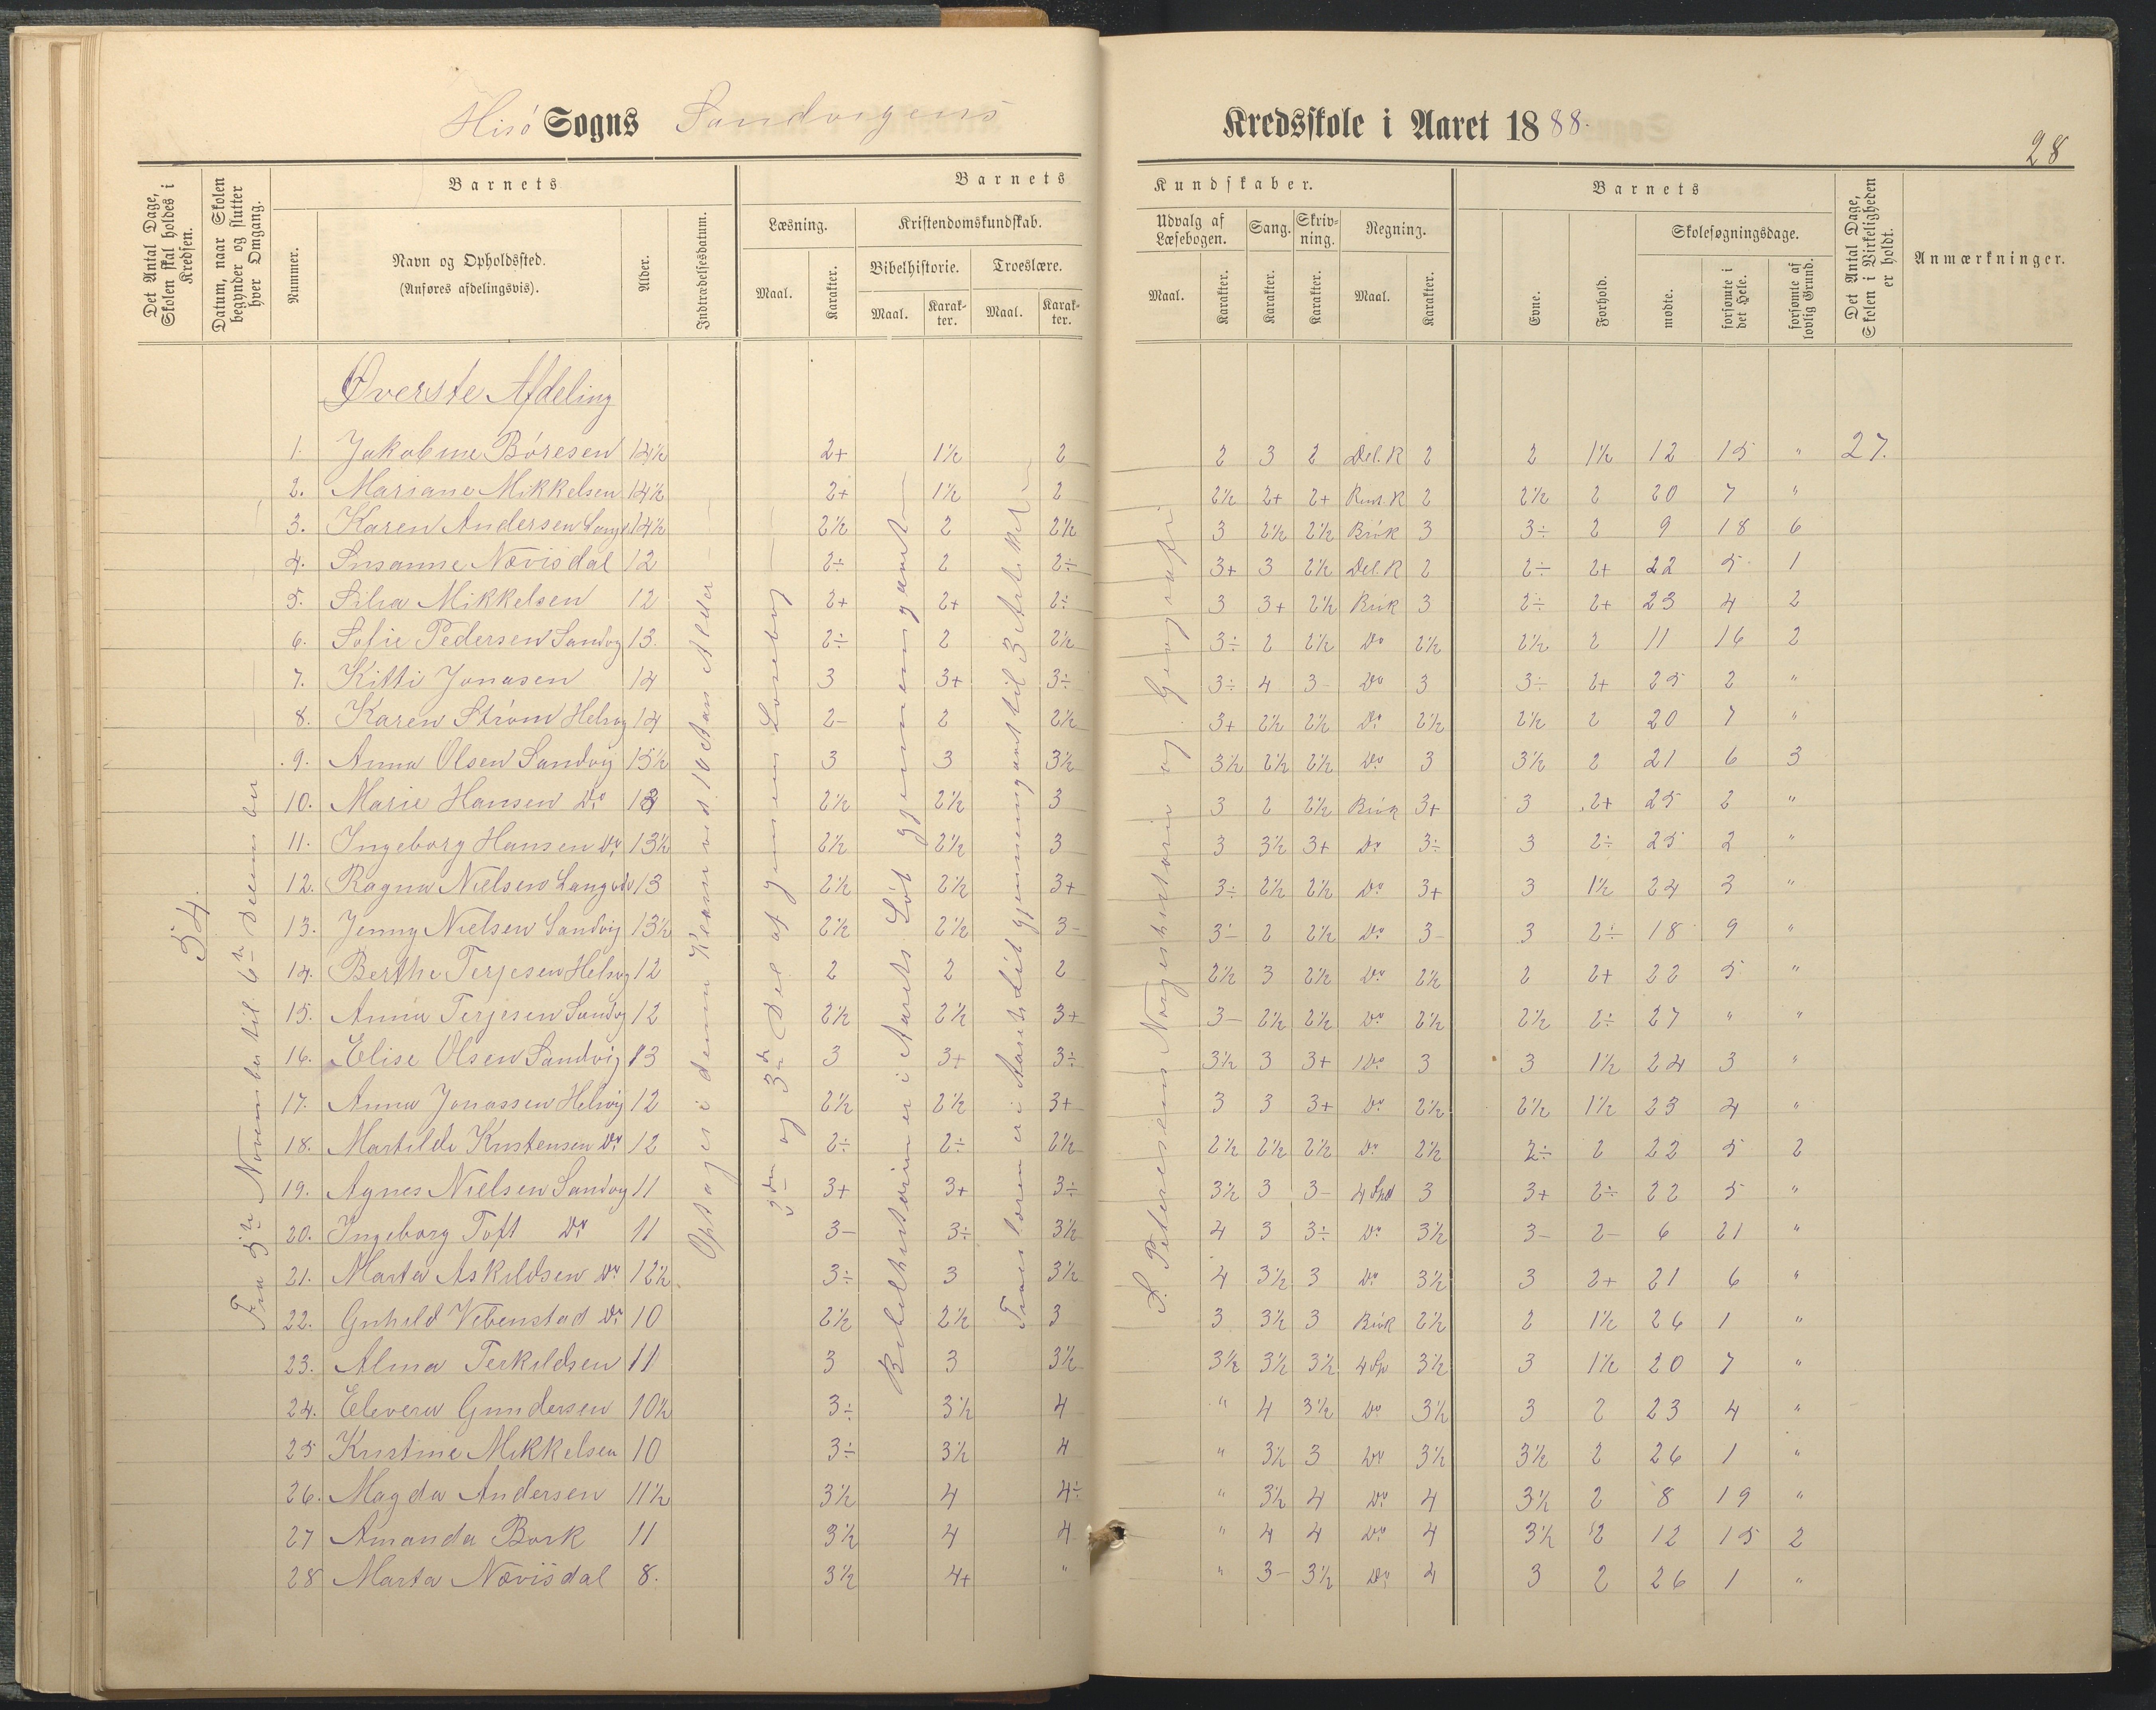 Hisø Sogns Sandvigens Kredsskole i Aaret 1888.
28
Det Antal Dage, Skolen skal holdes i Kredsen.
Datum, naar Skolen begynder og slutter hver Omgang.
Barnets
Nummer.
Navn og Opholdssted.
(Anføres afdelingsvis).
Alder.
Indtrædelsesdatum.
Barnets Kundskaber.
Læsning.
Maal.
Karakter.
Kristendomskundskab.
Bibelhistorie.
Maal.
Karakter.
Troeslære.
Maal.
Karakter.
Udvalg af Læsebogen.
Maal.
Karakter.
Sang.
Karakter.
Skrivning.
Karakter.
Regning.
Maal.
Karakter.
Barnets
Evne.
Forhold.
Skolesøgningsdage.
mødte.
forsømte i det Hele.
forsømte af lovlig Grund.
Det Antal Dage, Skolen i Virkeligheden er holdt.
Anmærkninger.
Øverste Afdeling
1. Jakobine Børesen 14½ 2+ 1½ 2 2 3 2 Del. R 2 2 1½ 12 15 " 27.
2. Mariane Mikkelsen 14½ 2+ 1½ 2 2½ 2+ 2+ Rent. R 2 2½ 2 20 7 "
3. Karen Andersen 14½ 2½ 2 2½ 3 2½ 2½ Brøk 3 3÷ 2 9 18 6
4. Susanne Nævisdal 12 2÷ 2 2÷ 3+ 3 2½ Del. R 2 2÷ 2+ 22 5 1
5. Silia Mikkelsen 12 2+ 2+ 2÷ 3 3+ 2½ Brøk 3 2÷ 2+ 23 4 2
6. Sofie Pedersen Sandvg 13. 2÷ 2 2½ 3÷ 2 2½ Do 2½ 2½ 2 11 16 2
7. Kitti Jonasen 14 3 3+ 3÷ 3÷ 4 3- Do 3 3÷ 2+ 25 2 "
8. Karen Strøm Helvig 14 2- 2 2½ 3+ 2½ 2½ Do 2½ 2½ 2 20 7 "
9. Anna Olsen Sandvig 15½ 3 3 3½ 3½ 2½ 2½ Do 3 3½ 2 21 6 3
10. Marie Hansen Do 13 2½ 2½ 3 3 2 2½ Brøk 3+ 3 2+ 25 2 "
11. Ingeborg Hansen Do 13½ 2½ 2½ 3 3 3½ 3+ Do 3÷ 3 2÷ 25 2 "
12. Ragna Nielsen 13 2½ 2½ 3+ 3÷ 2½ 2½ Do 3+ 3 1½ 24 3 "
13. Jenny Nielsen Sandvig 13½ 2½ 2½ 3- 3- 2 2½ Do 3- 3 2÷ 18 9 "
14. Berthe Terjesen Helvig 12 2 2 2 2½ 3 2½ Do 2½ 2 2+ 22 5 "
15. Anna Terjesen Sandvg 12 2½ 2½ 3+ 3- 2½ 2½ Do 2½ 2½ 2÷ 27 " "
16. Elise Olsen Sandvig 13 3 3+ 3÷ 3½ 3 3+ Do 3 3 1½ 24 3 "
17. Anna Jonassen Helvig 12 2½ 2½ 3+ 3 3 3+ Do 2½ 2½ 1½ 23 4 "
18. Martilde Kristensen Do 12 2÷ 2÷ 2½ 2½ 2½ 2½ Do 2½ 2÷ 2 22 5 2
19. Agnes Nielsen Sandvg 11 3+ 3+ 3÷ 3½ 3 3- 4 Spd 3 3+ 2÷ 22 5 "
20. Ingeborg Toft Do 11 3- 3÷ 3½ 4 3 3÷ Do 3½ 3- 2- 6 21 "
21. Marta Askildsen Do 12½ 3÷ 3 3½ 4 3½ 3 Do 3½ 3 2+ 21 6 "
22. Gnhild Vebenstad Do 10 2½ 2½ 3 3 3½ 3 Brøk 2½ 2 1½ 26 1 "
23. Alma Terkildsen 11 3 3 3½ 3½ 3½ 3½ 4 Sp 3½ 3 1½ 20 7 "
24. Elevera Gundersen 10½ 3÷ 3½ 4 " 4 3½ Do 3½ 3 2 23 4 "
25 Kristine Mikkelsen 10 3÷ 3½ 4 " 3½ 3 Do 3½ 3½ 2 26 1 "
26. Magda Andersen 11½ 3½ 4 4÷ " 3½ 4 Do 4 3½ 2 8 19 "
27 Amanda Bork 11 3½ 4 4 " 4 4 Do 4 3½ 2 12 15 2
28 Marta Nævisdal 8. 3½ 4+ " " 3- 3½ Do 4 3 2 26 1 "
54.
Fra 5te November til 6te December
Optages i denne Klasse ved 10 Aars Alder
2den og 3die Del af Jensens Læsebog
Bibelhistorien er i Aarets Løb gjennemgaaet
Troeslæren er i Aarets Løb gjennemgaaet til 3 Artikel
S. Petersens Norgeshistorie og Geografi